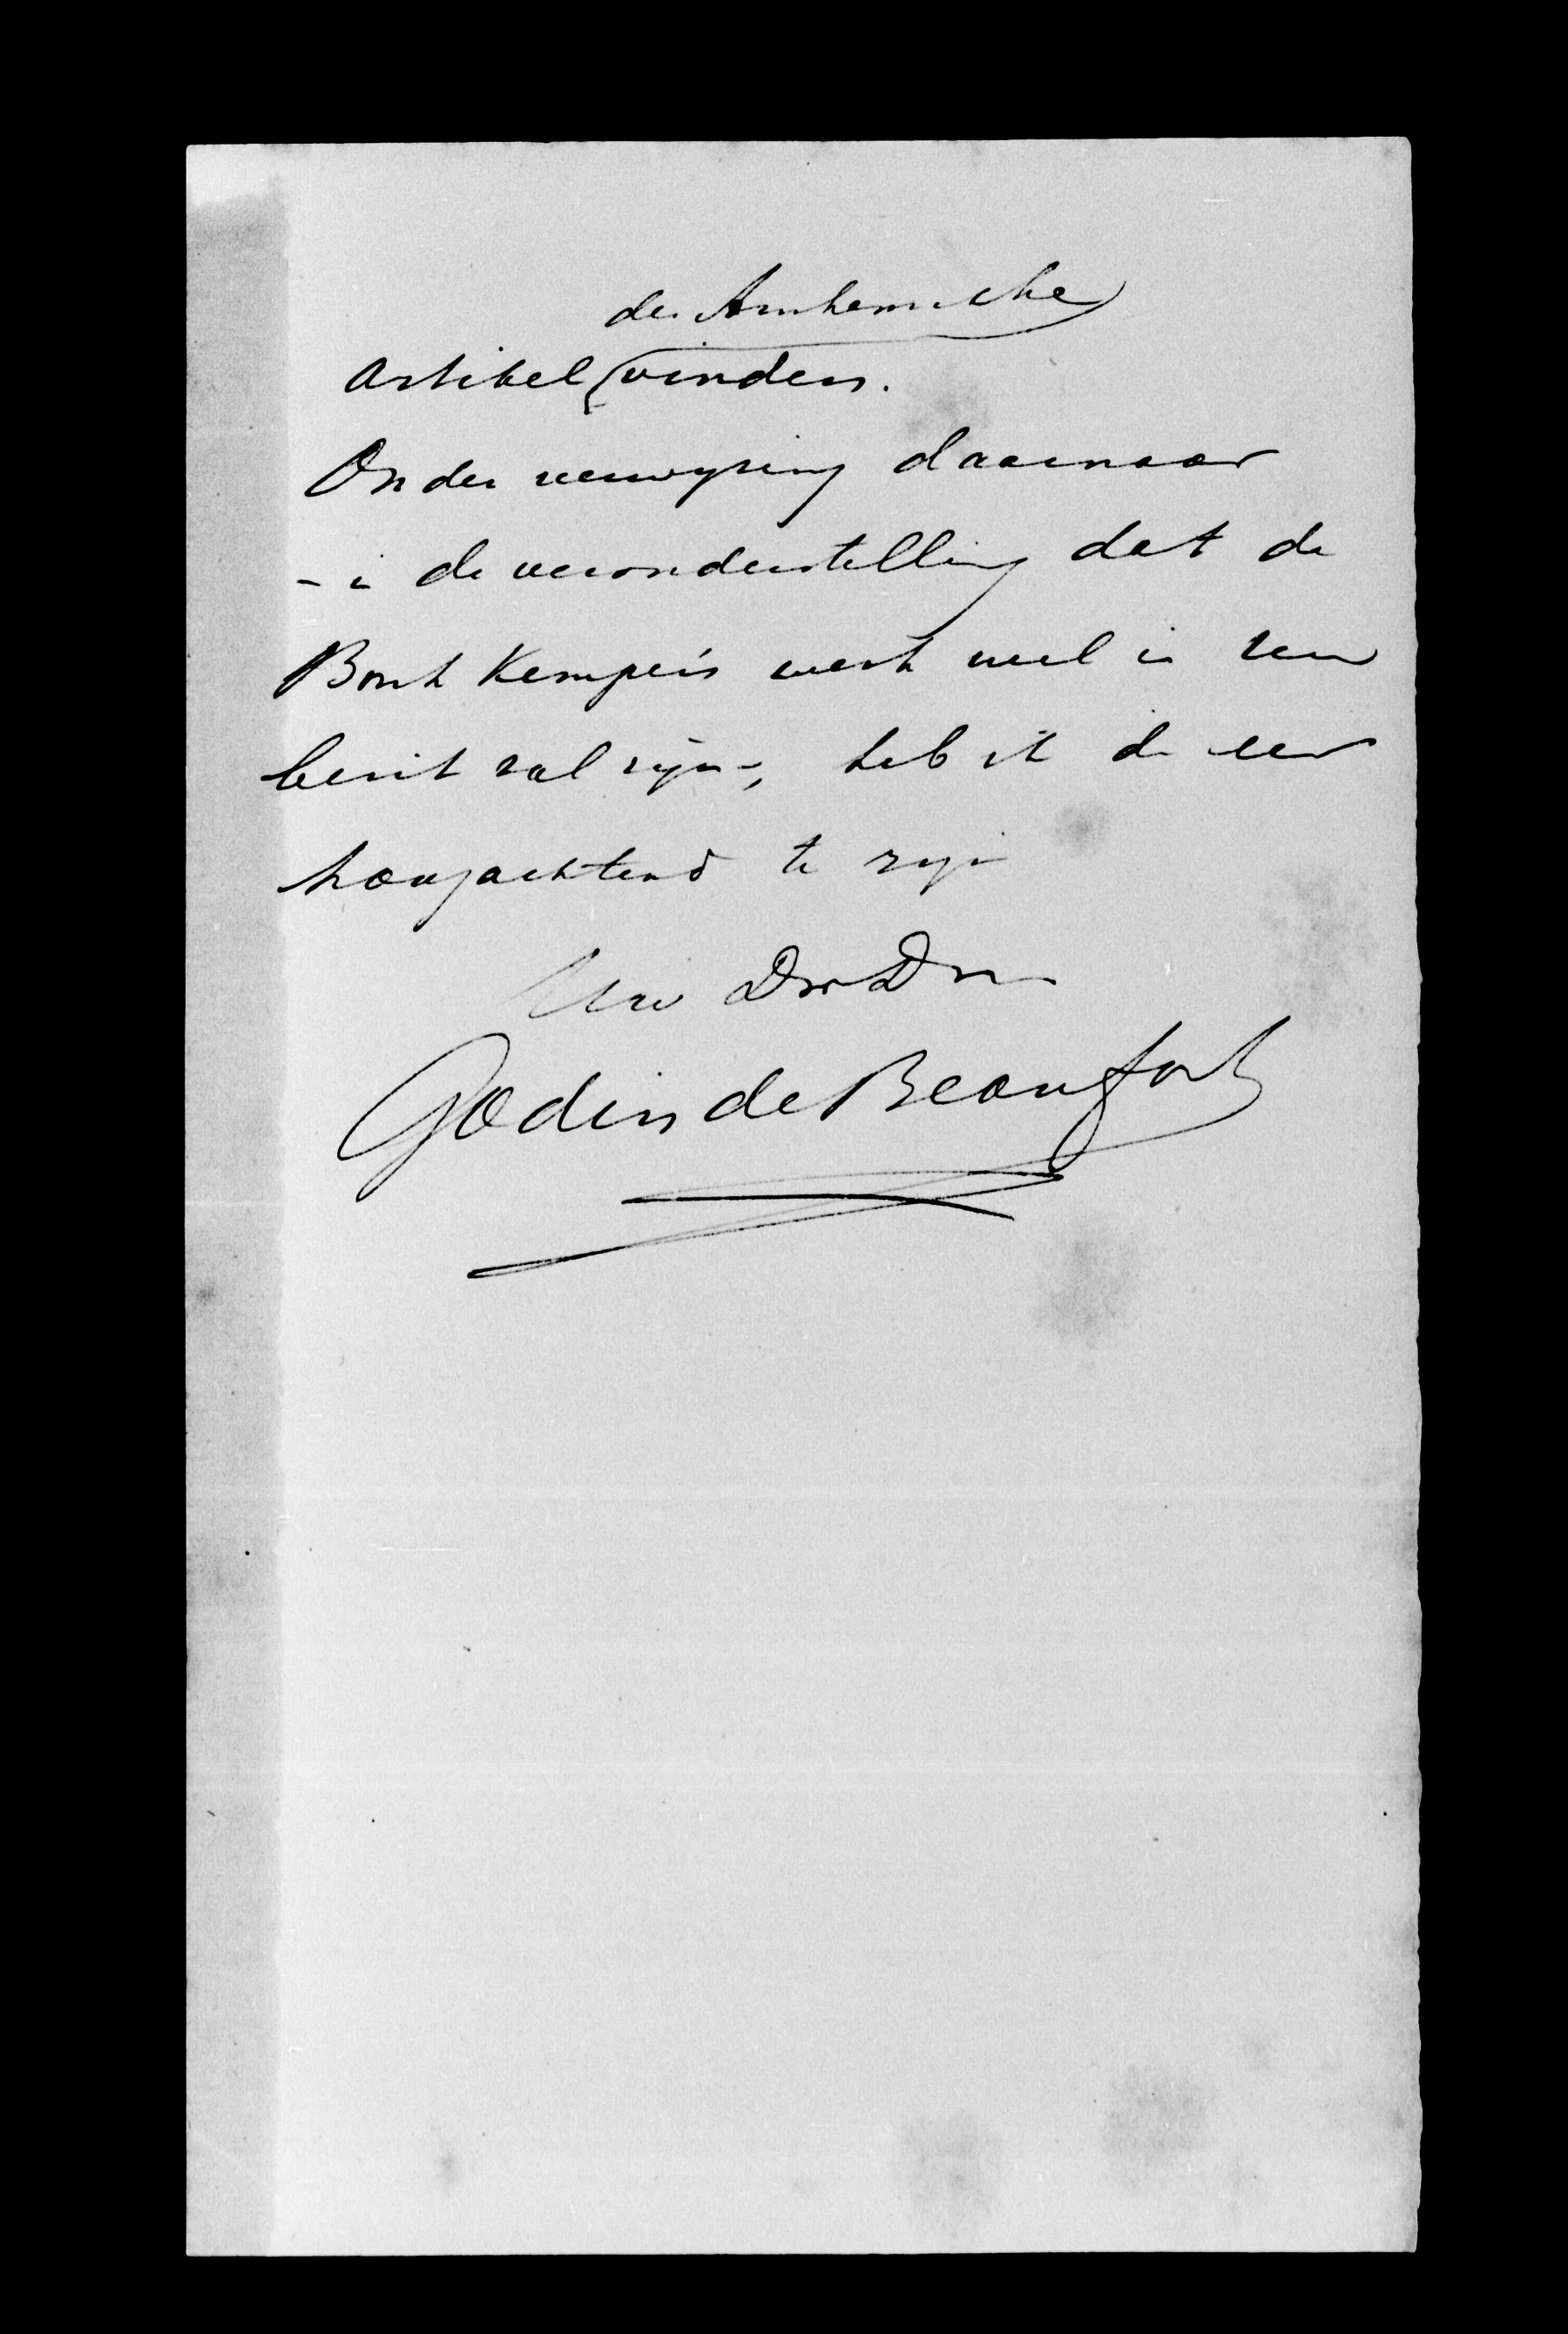 der Arnhemsche
Artikel vinden.
Onder verwyzing daarnaar
- in de veronderstelling dat de
Bosch Kemper's werk wel in Uw
bezit zal zijn -, heb ik de eer
hoogachtend te zijn
Uw DwDr
Godin de Beaufort